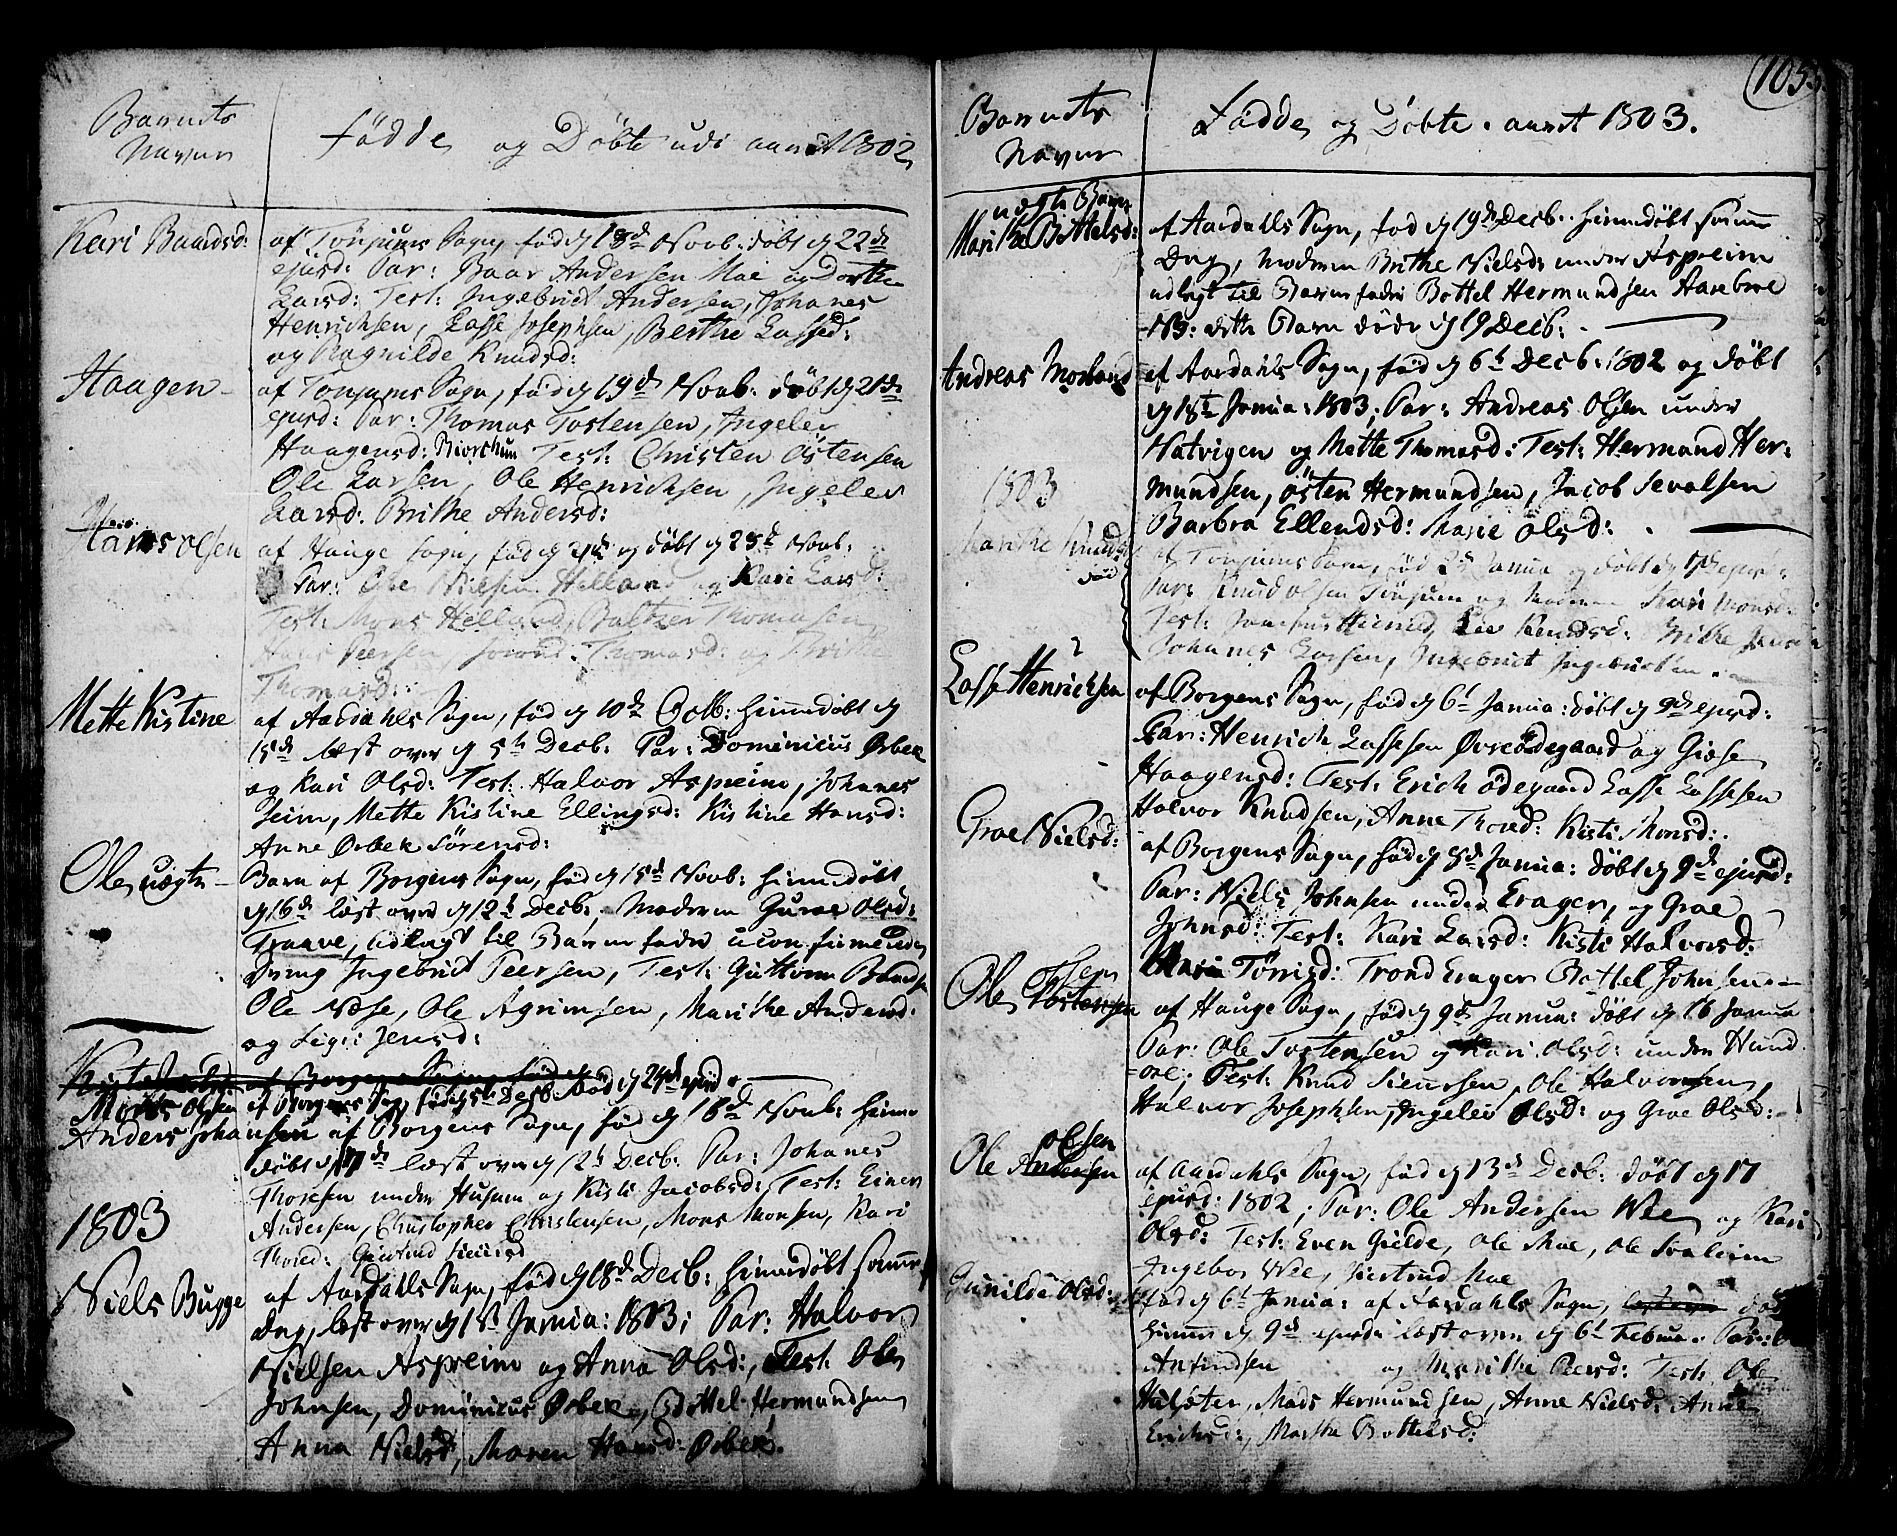 Barnets
Navn
Födde og Döbte udi aaret 1802
Kari Baardsd:
af Tönjums Sogn, föd d 18d Novb. döbt d 22d
ejusd: Par: Baar Andersen Moe og Dorthe
Larsd: Test: Ingebrict Andersen, Johanes
Henrichsen, Lasse Josephsen, Berthe Lassed:
og Ragnilde Knudsd:
Haagen
af Tonjums Sogn, föd d 19d Novb. döbt d 21d
ejusd: Par: Thomas Tostensen, Ingelev
Haagensd: Test: Christen Östensen
Ole Larsen, Ole Henrichsen, Ingelev
Larsd: Brithe Andersd:
Hans Olsen
af Hauge Sogn, föd d og döbt d 28d Novb.
Par: Ole Nielsen Helland og Kari Larsd:
Test: Mons Helland, Baltzer Thomasen
Hans Peersen, Thomasd: og Brithe
Thomasd:
Mette Kistine
af Aardahls Sogn, föd d 10d Octb: hiemedöbt d
15d læst over d 5t Decb: Par: Dominicus Ørbek
og Kari Olsd: Test: Halvor Aspreim, Johanes
Seim, Mette Kistine Ellingsd: Kistine Hansd:
Anne Ørbek Sörensd:
Ole uægte
Barn af Borgens Sogn, föd d 15d Novb: hiemedöbt
d 16d læst over d 12t Decb:, Moderen Guroe Olsd:
udlagt til Barnefader
Dreng Ingebrict Peersen, Test: Guttorm
Ole Næse, Ole Agrimsen, Marithe Andersd:
og Sigri Jensd:
Olsen af Borgens Sogn, föd d 5t Decb: död d 24d ejusd.
Anders Johansen af Borgens Sogn, föd d 16d Novb: hieme
döbt d 17d læst over d 12t Decb: Par: Johanes
Thoresen under Husum og Kisti Jacobsd: Test: Einer
Andersen, Christopher Christensen, Mons Monsen, Kari
Thored: Giertrud
1803
Niels Bugge
af Aardahls Sogn, föd d 18d Decb: hiemedöbt samme
Dag, læst over d 1st Janua: 1803; Par: Halvor
Nielsen Aspreim og Anna Olsd:, Test: Ole
Johnsen, Dominicus Ørbek, Bottel Hermundsen
Anna Nielsd, Maren Hansd: Ørbek.
105
Barnets
Navn
Födde og Döbte aaret 1803.
uægte Barn
Marithe Bottelsd:
af Aardahls Sogn, föd d 19d Decb. hiemedöbt samme
Dag, Moderen Brithe Nielsd: under Aspreim
udlagt til Barnefader Bottel Hermundsen Aarebroe
NB: dette Barn döde d 19 Decb:
Andreas Morland
af Aardahls Sogn, föd d 6t Decb: 1802 og döbt
d 1st Janua: 1803; Par: Andreas Olsen under
Natvigen og Mette Thomasd: Test: Hermand Her-
mundsen, Östen Hermundsen, Jacob Sevalsen
Barbra Ellendsd: Marie Olsd:
1803
Marithe Knudsd
död
af Tonjums Sogn, föd 2d Janua og döbt d ejusd:
Par: Knud Olsen Tönjum og Moderen Kari Monsd:
Test: Knudsd: Brithe
Johanes Larsen, Ingebrict Ingebrictsen.
Lasse Henrichsen
af Borgens Sogn, föd d 6t Janua: döbt d 9d ejusd:
Par: Henrich Lassesen Øvreödegaard og Giöse
Haagensd: Test: Erich Ödegaard Lasse Lassesen
Halvor Knudsen, Anne Thored: Kisti Monsd:
Groe Nielsd:
af Borgens Sogn, föd d 5d Janua: döbt d 9d ejusd:
Par: Niels Johnsen under Erager, og Groe
Johnsd: Test: Kari Larsd: Kisti Halvorsd:
Marie Törrisd: Trond Erager Bottel Johnsen
Ole Olsen Tostensen
af Hauge Sogn, föd d 9d Janua: döbt d 16 Janua
Par: Ole Tostensen og Kari Olsd: under Hund
ore; Test: Knud Siensen, Ole Halvorsen,
Halvor Josephsen, Ingelev Olsd: og Groe Olsd:
Ole Olsen Andersen
af Aardahls Sogn, föd d 13d Decb: döbt d 17
ejusd: 1802; Par: Ole Andersen Wee og Kari
Olsd: Test: Even Gielde, Ole Moe, Ole Svalheim
Ingebor Wee, Giertrud Moe
Gunilde Olsd:
föd d 6t Janua: af Aardahls Sogn, döbt
hieme d 9d ejusd: læst over d 6t Februa. Par:
Amundsen og Marithe Peersd: Test: Ole
Mads Hermundsen, Anne Nielsd: Anne
Erichsd:, Martha Bottelsd: